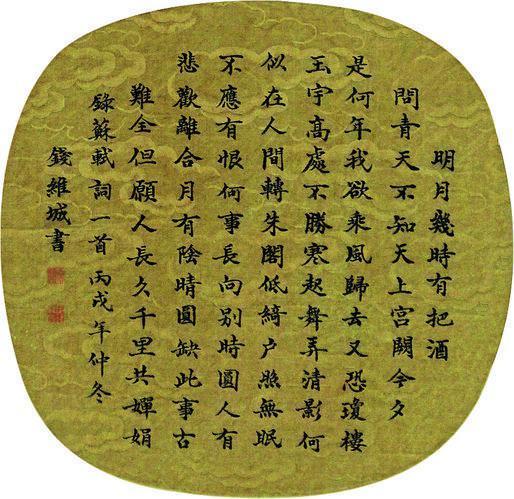 明月幾時有把酒
問青天不知天上宮闕今夕
是何年我欲乘風歸去又恐瓊樓
玉宇高處不勝寒起舞弄清影何
似在人間轉朱閣低綺户照無眠
不應有恨何事長向別時圓人有
悲歡離合月有陰晴圓缺此事古
難全但願人長久千里共嬋娟
錄蘇軾詞一首丙戌年仲冬
錢維城書